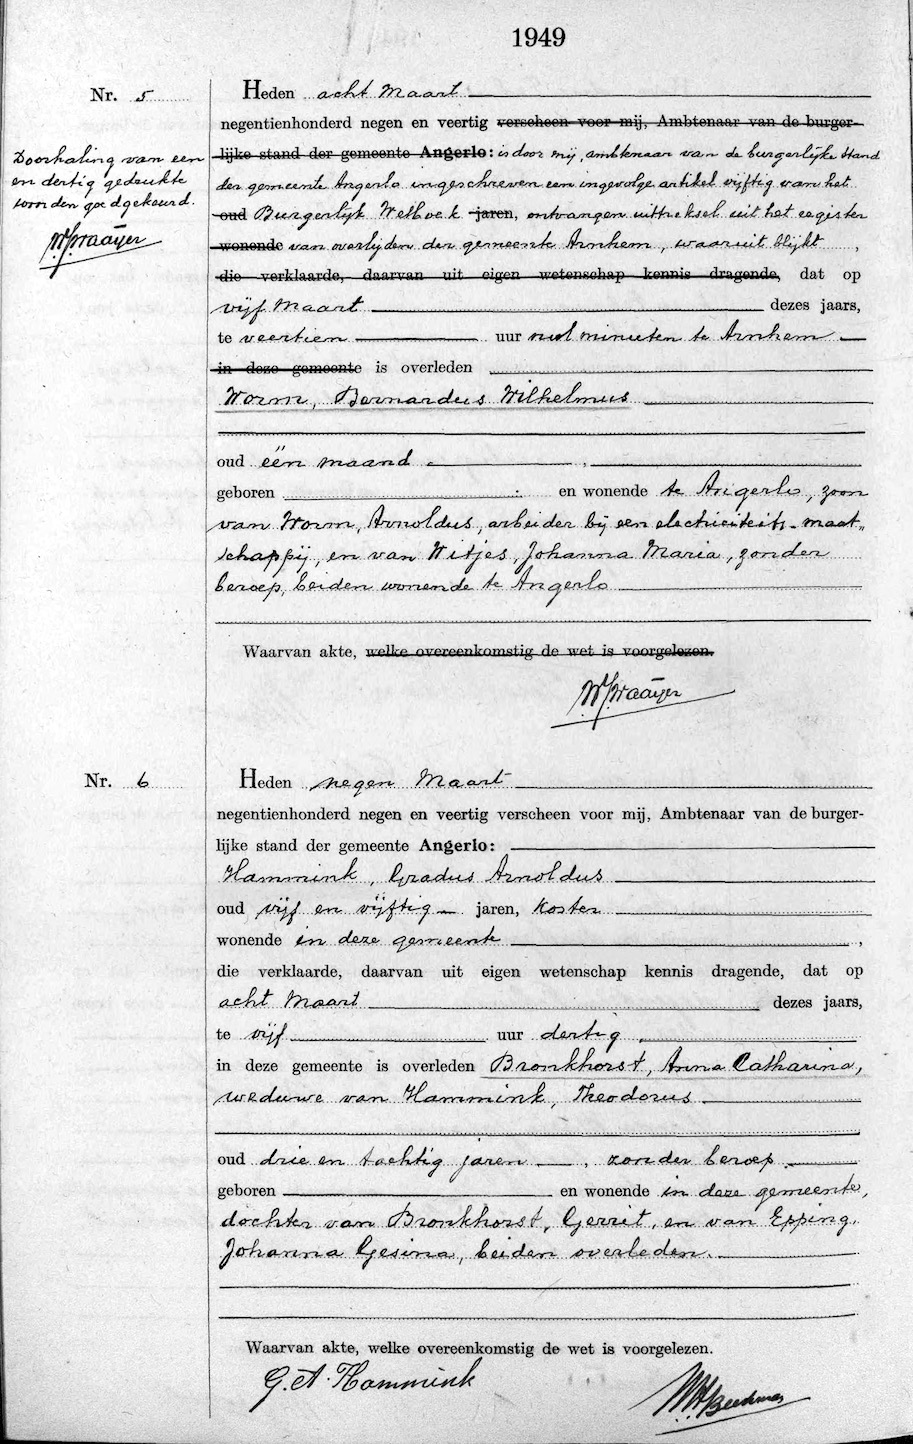 1949
Nr. 5
Doorhaling van een
en dertig gedrukte
woorden goedgekeurd.
Heden acht Maart
negentienhonderd negen en veertig verscheen voor mij, Ambtenaar van de burger-
lijke stand der gemeente Angerlo: is door mij, ambtenaar van de burgerlijke stand
der gemeente Angerlo ingeschreven een ingevolge artikel vijftig van het
oud Burgerlijk Wetboek jaren, ontvangen uittreksel uit het register
wonende van overlijden der gemeente Arnhem, waaruit blijkt,
die verklaarde, daarvan uit eigen wetenschap kennis dragende, dat op
vijf Maart dezes jaars,
te veertien uur nul minuten te Arnhem
in deze gemeente is overleden
Worm, Bernardus Wilhelmus
oud één maand,
geboren en wonende te Angerlo, zoon
van Worm, Arnoldus, arbeider bij een electriciteits-maat„
schappij, en van Witjes, Johanna Maria, zonder
beroep, beiden wonende te Angerlo
Waarvan akte, welke overeenkomstig de wet is voorgelezen.
Nr. 6
Heden negen Maart
negentienhonderd negen en veertig verscheen voor mij, Ambtenaar van de burger-
lijke stand der gemeente Angerlo:
Hammink, Gradus Arnoldus
oud vijf en vijftig jaren, koster
wonende in deze gemeente,
die verklaarde, daarvan uit eigen wetenschap kennis dragende, dat op
acht Maart dezes jaars,
te vijf uur dertig,
in deze gemeente is overleden Bronkhorst, Anna Catharina,
weduwe van Hammink, Theodorus
oud drie en tachtig jaren, zonder beroep.
geboren en wonende in deze gemeente,
dochter van Bronkhorst, Gerrit, en van Epping,
Johanna Gesina, beiden overleden.
Waarvan akte, welke overeenkomstig de wet is voorgelezen.
G. A. Hammink